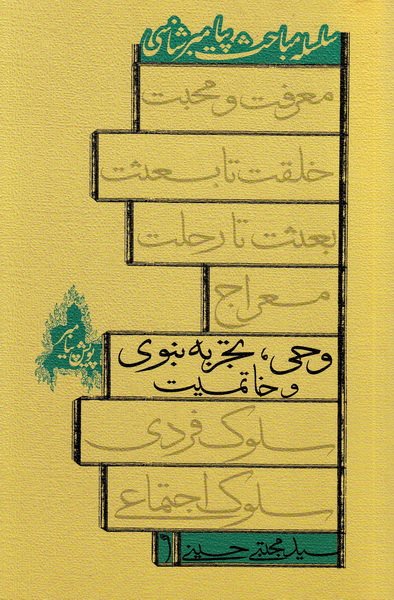 سلسله مباحث پیامبرشناسی
معرفت و محبت
خلقت تا بعثت
بعثت تا رحلت
معراج
وحی، تجربه نبوی
و خاتمیت
پیامبر
سلوک فردی
سلوک اجتماعی
سید مجتبی حسینی